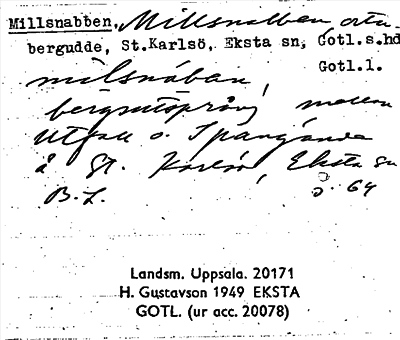 Millsnabben, Millsnabben, 
bergudde, St.Karlsö, Eksta sn, Gotl.s.hd
Gotl.l.
milsnában
mellan
o. Spangände
å St. Karlsö, Eksta sn
B.L. s. 64
Landsm. Uppsala. 20171
H. Gustavson 1949 EKSTA
GOTL. (ur acc. 20078)